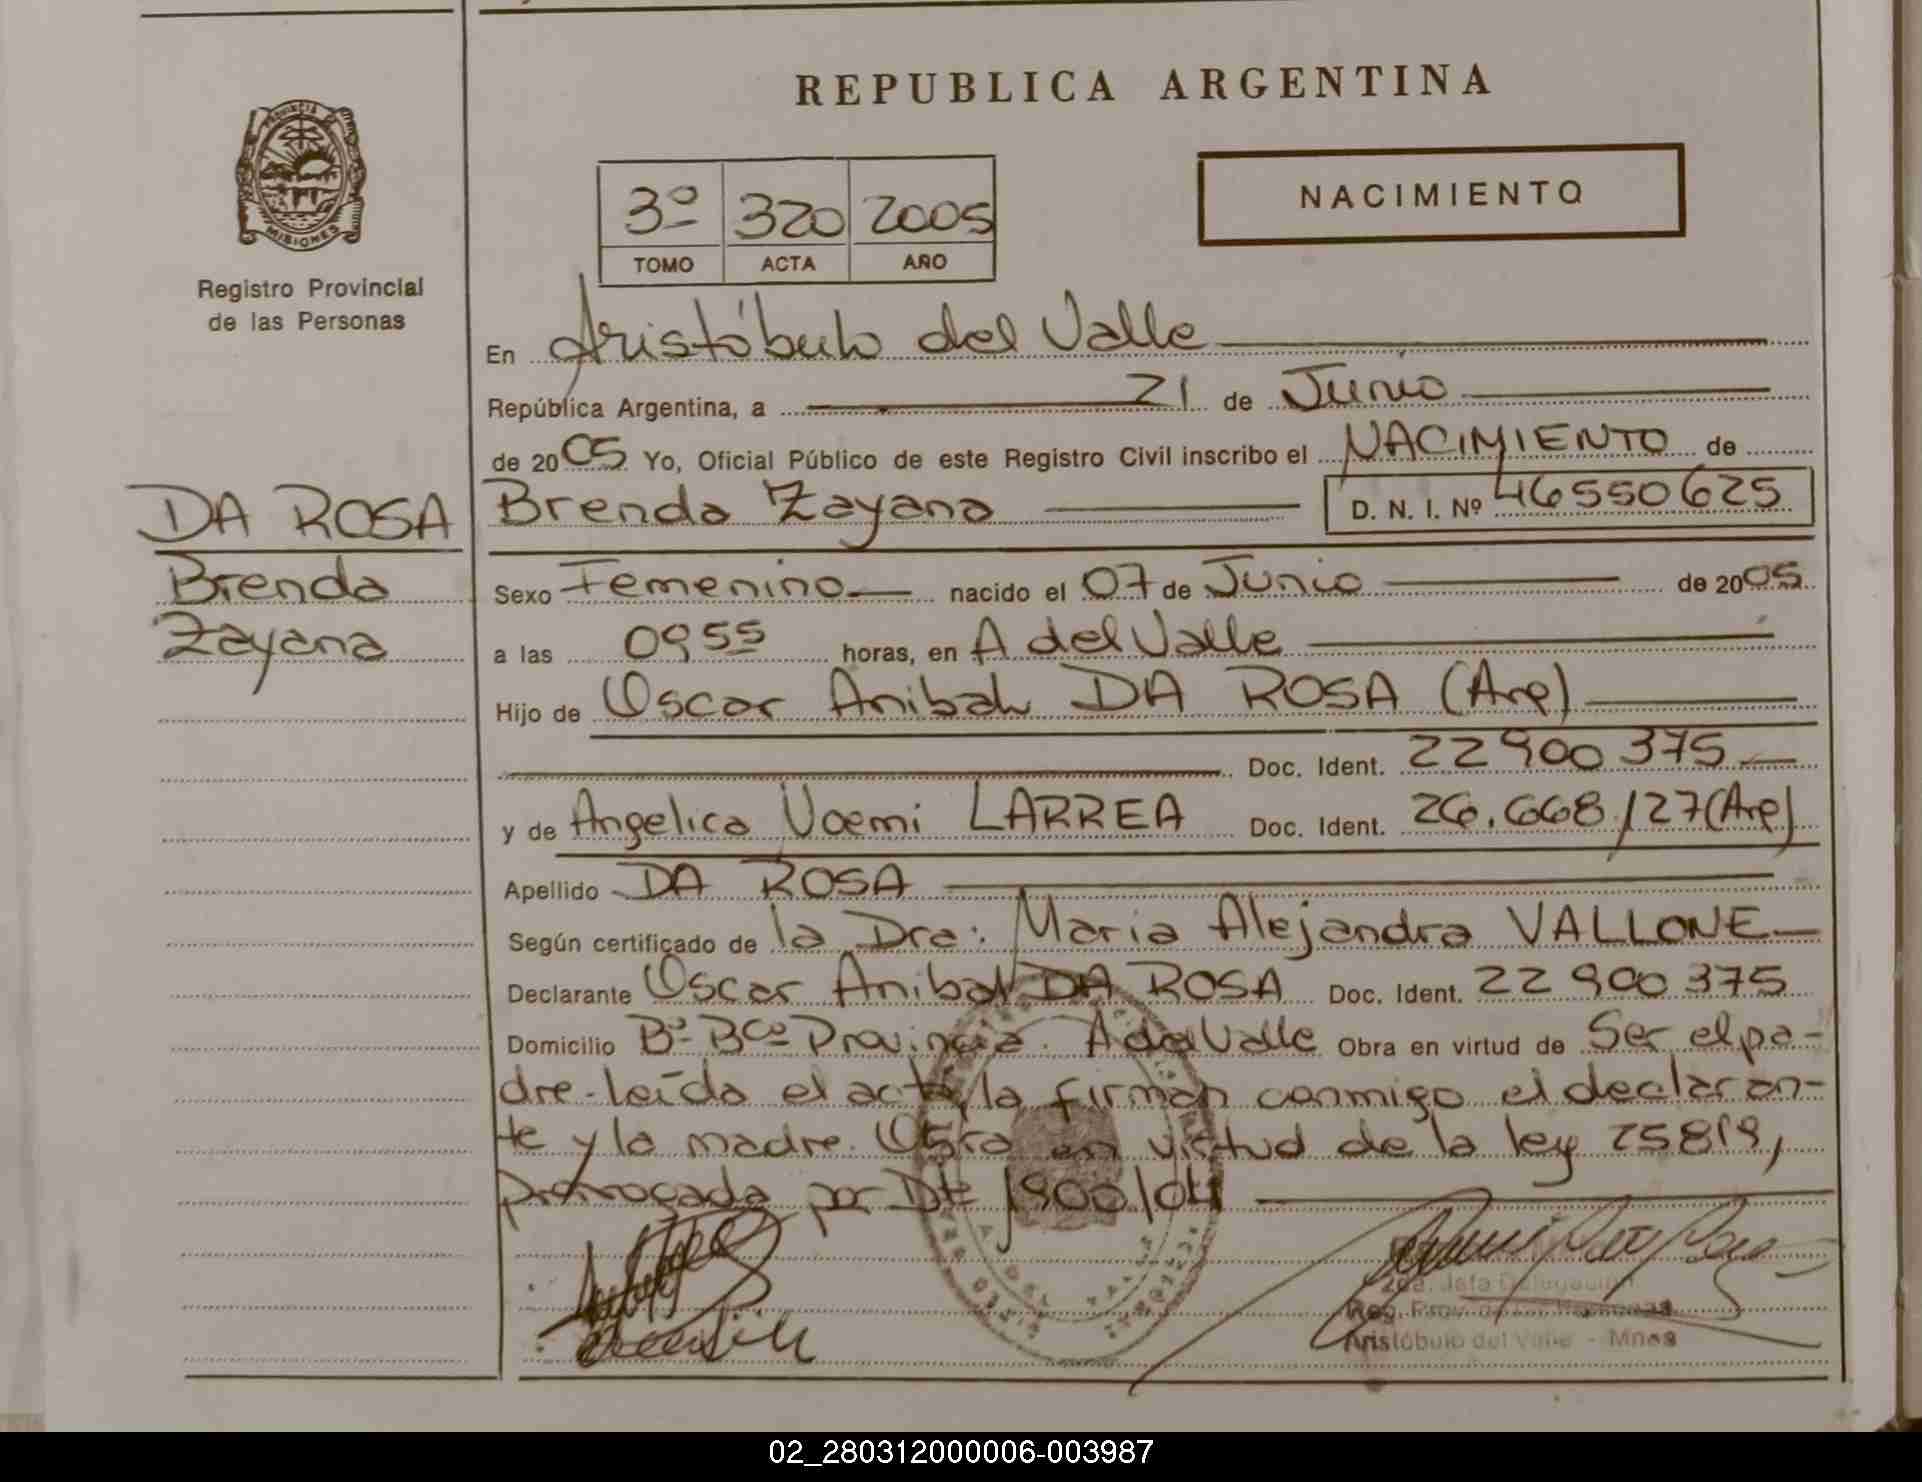 REPUBLICA ARGENTINA
PROVINCIA
MISIONES
Registro Provincial
de las Personas
NACIMIENTO
3º 320 2005
TOMO ACTA AÑO
En Aristóbulo del Valle
República Argentina, a 21 de Junio
de 2005 Yo, Oficial Público de este Registro Civil inscribo el NACIMIENTO de
DA ROSA
Brenda
Zayana
Brenda Zayana D. N. I. Nº 46550625
Sexo Femenino nacido el 07 de Junio de 2005
a las 0955 horas, en A del Valle
Hijo de Oscar Anibal DA ROSA (Arg)
Doc. Ident. 22900375
y de Angelica Noemi LARREA Doc. Ident. 26.668.127(Arg)
Apellido DA ROSA
Según certificado de la Dra: Maria Alejandra VALLONE
Declarante Oscar Anibal DA ROSA Doc. Ident. 22900375
Domicilio Bº Bco Provincia. A del Valle Obra en virtud de Ser el pa-
dre-leída el acta, la firman conmigo el declaran-
te y la madre. Obra en virtud de la ley 25819,
prorrogada por Dte 1900/04
2da. Jefa Delegación
Reg. Prov. de las Personas
Aristóbulo del Valle - Mnes
02_280312000006-003987